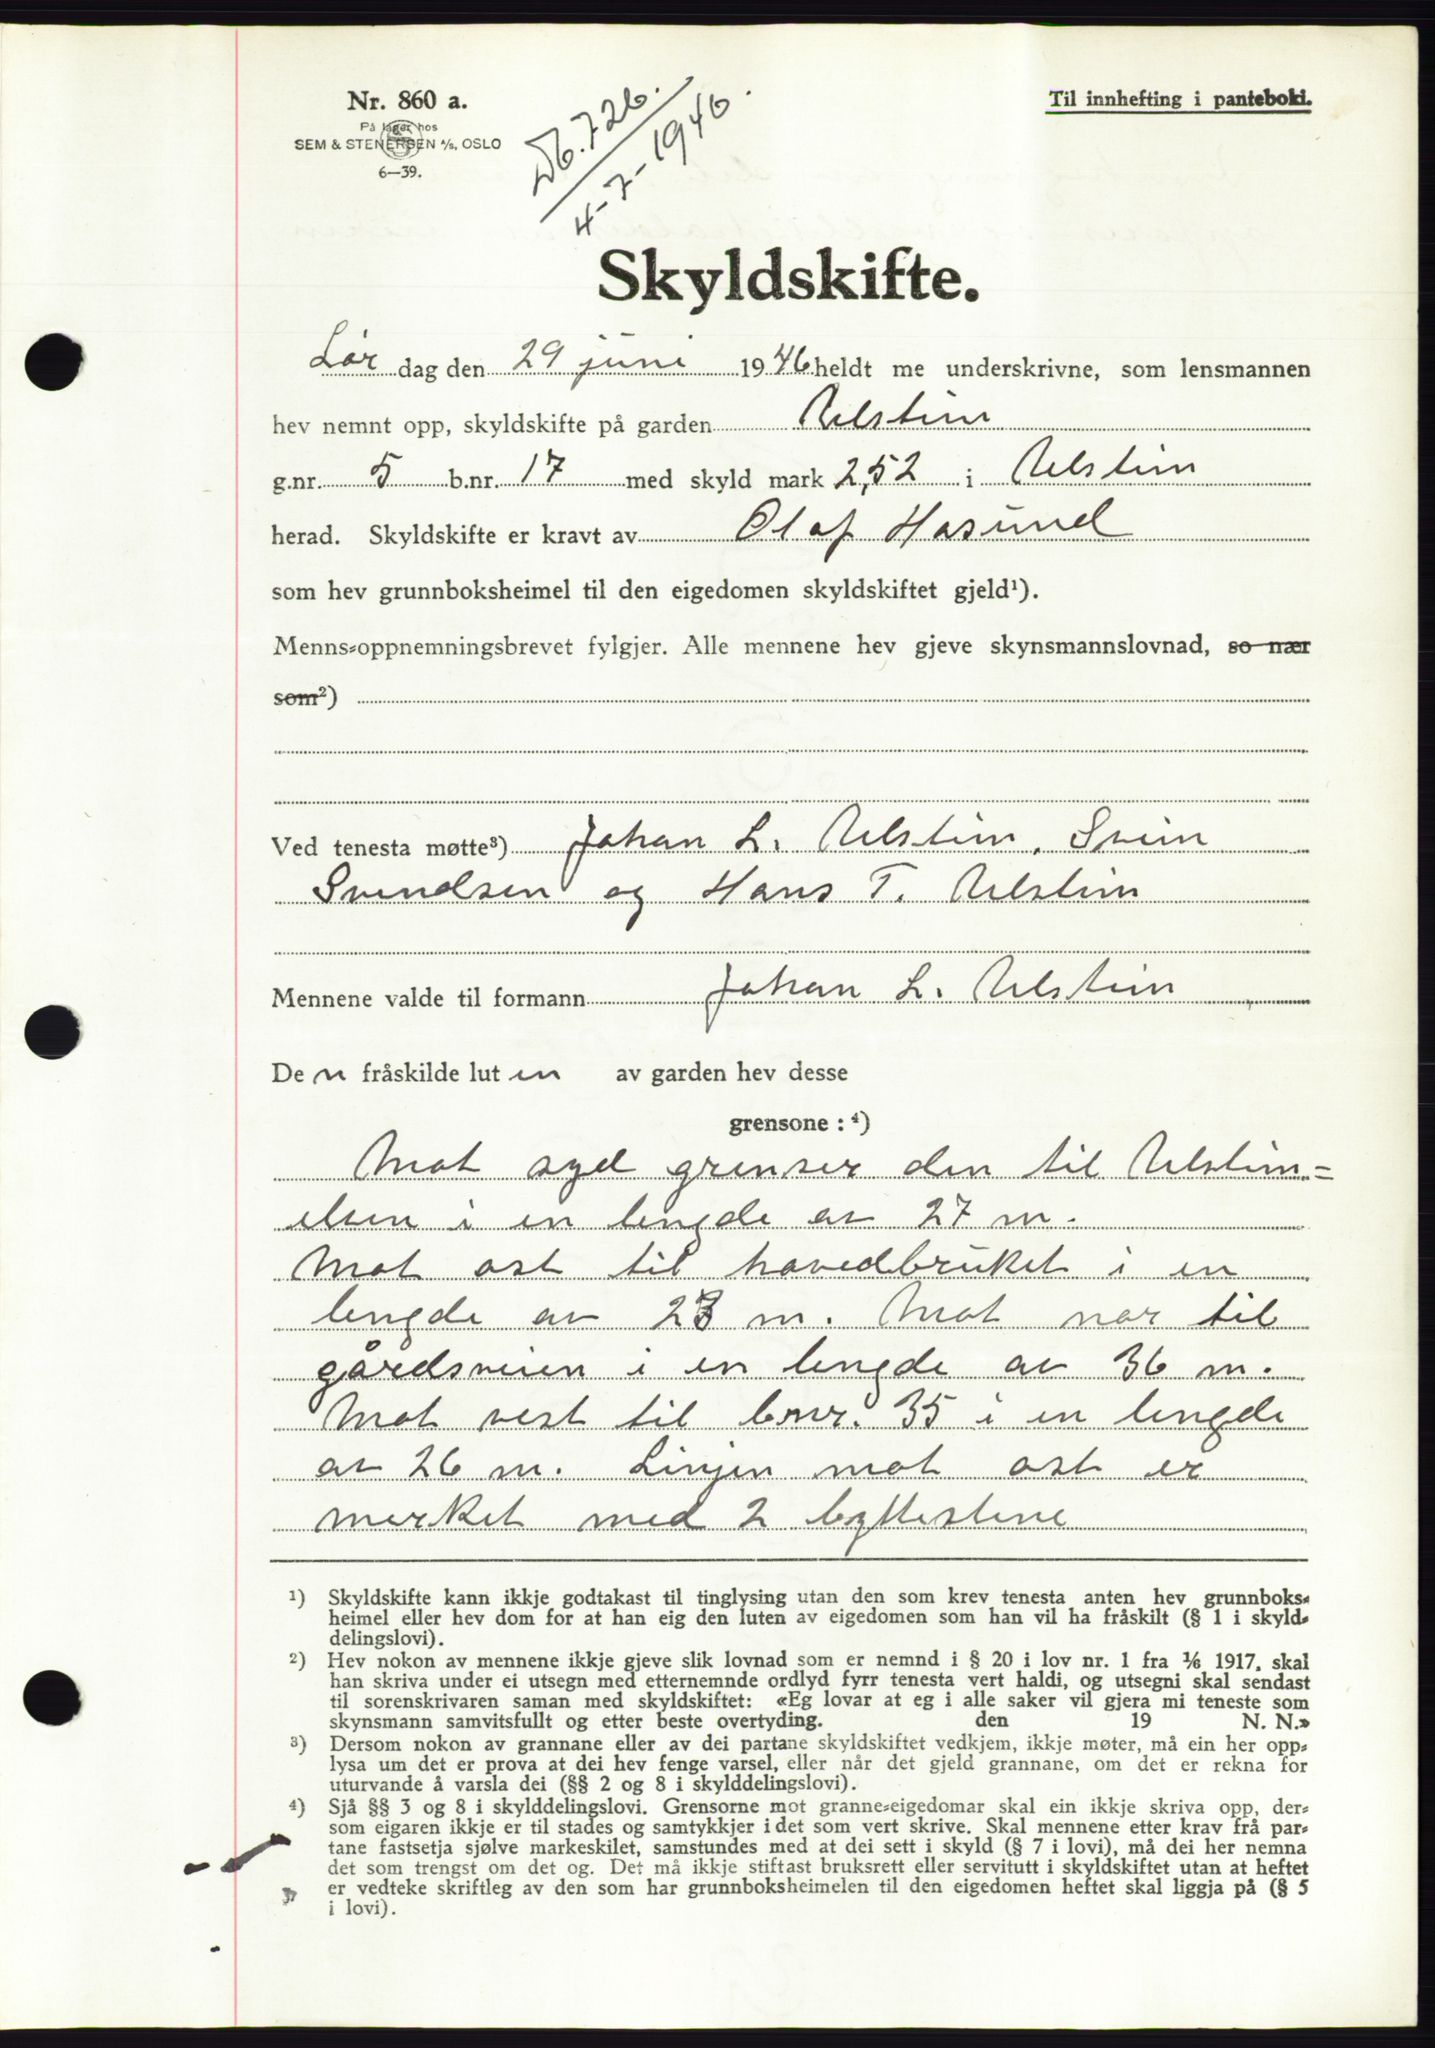 Nr. 860 a.
På lager hos
SEM & STENERSEN A/S, OSLO
6—39.
Db. 726.
4-7-1946.
Til innhefting i panteboki.
Skyldskifte.
Lør dag den 29 juni 1946 heldt me underskrivne, som lensmannen
hev nemnt opp, skyldskifte på garden Ulstein
g.nr. 5 b.nr. 17 med skyld mark 2,52 i Ulstein
herad. Skyldskifte er kravt av Olaf Hasund
som hev grunnboksheimel til den eigedomen skyldskiftet gjeld¹).
Menns-oppnemningsbrevet fylgjer. Alle mennene hev gjeve skynsmannslovnad, so nær
som²)
Ved tenesta møtte³) Johan L. Ulstein, Svein
Svendsen og Hans T. Ulstein
Mennene valde til formann Johan L. Ulstein
De n fråskilde lut en av garden hev desse
grensone : ⁴)
Mot syd grenser den til Ulstein=
elven i en lengde av 27 m.
Mot øst til hovedbruket i en
lengde av m. Mot nor til
gårdsveien i en lengde av 36 m.
Mot vest til bnr. 35 i en lengde
av 26 m. Linjen mot øst er
merket med 2 byttestene
¹) Skyldskifte kann ikkje godtakast til tinglysing utan den som krev tenesta anten hev grunnboks-
heimel eller hev dom for at han eig den luten av eigedomen som han vil ha fråskilt (§ 1 i skyld-
delingslovi).
²) Hev nokon av mennene ikkje gjeve slik lovnad som er nemnd i § 20 i lov nr. 1 fra 1/6 1917, skal
han skriva under ei utsegn med etternemnde ordlyd fyrr tenesta vert haldi, og utsegni skal sendast
til sorenskrivaren saman med skyldskiftet: «Eg lovar at eg i alle saker vil gjera mi teneste som
skynsmann samvitsfullt og etter beste overtyding. den 19 N. N.»
³) Dersom nokon av grannane eller av dei partane skyldskiftet vedkjem, ikkje møter, må ein her opp-
lysa um det er prova at dei hev fenge varsel, eller når det gjeld grannane, om det er rekna for
uturvande å varsla dei (§§ 2 og 8 i skylddelingslovi).
⁴) Sjå §§ 3 og 8 i skylddelingslovi. Grensorne mot granne-eigedomar skal ein ikkje skriva opp, der-
som eigaren ikkje er til stades og samtykkjer i det som vert skrive. Skal mennene etter krav frå par-
tane fastsetja sjølve markeskilet, samstundes med at dei sett i skyld (§ 7 i lovi), må dei her nemna
det som trengst om det og. Det må ikkje stiftast bruksrett eller servitutt i skyldskiftet utan at heftet
er vedteke skriftleg av den som har grunnboksheimelen til den eigedomen heftet skal liggja på (§ 5
i lovi).